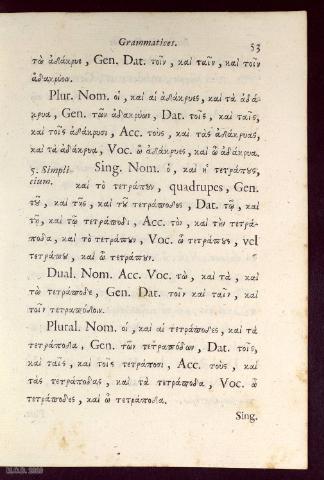 Grammatices. 53
τὼ ἀδάκρυε, Gen. Dat. τοῖν, καὶ ταῖν, καὶ τοῖν
ἀδακρύοιν.
Plur. Nom. οἱ, καὶ αἱ ἀδάκρυες, καὶ τὰ ἀδά-
κρυα, Gen. τῶν ἀδακρύων, Dat. τοῖς, καὶ ταῖς,
καὶ τοῖς ἀδάκρυσι, Acc. τοὺς, καὶ τὰς ἀδάκρυας,
καὶ τὰ ἀδάκρυα, Voc. ὦ ἀδάκρυες, καὶ ὦ ἀδάκρυα.
5. Simpli-
cium.
Sing. Nom. ὁ, καὶ ἡ τετράπυς,
καὶ τὸ τετράπυν, quadrupes, Gen.
τῦ, καὶ τῆς, καὶ τῦ τετράποδος, Dat. τῷ, καὶ
τῇ, καὶ τῷ τετράποδι, Acc. τὸν, καὶ τὴν τετρά-
ποδα, καὶ τὸ τετράπυν, Voc. ὦ τετράπυς, vel
τετράπυ, καὶ ὦ τετράπυν.
Dual. Nom. Acc. Voc. τὼ, καὶ τὰ, καὶ
τὼ τετράποδε, Gen. Dat. τοῖν καὶ ταῖν, καὶ
τοῖν τετραπόδοιν.
Plural. Nom. οἱ, καὶ αἱ τετράποδες, καὶ τὰ
τετράποδα, Gen. τῶν τετραπόδων, Dat. τοῖς,
καὶ ταῖς, καὶ τοῖς τετράποσι, Acc. τοὺς, καὶ
τὰς τετράποδας, καὶ τὰ τετράποδα, Voc. ὦ
τετράποδες, καὶ ὦ τετράποδα.
Sing.